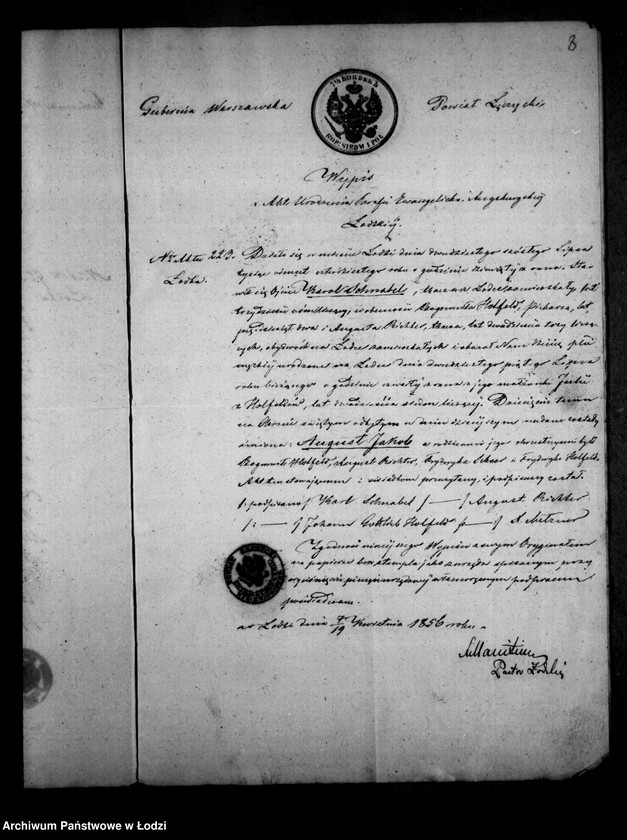 8
7½ КОПѢЕКЪ
KOP: SIEDM I PÓŁ
Gubernia Warszawska
Powiat Łęczycki
Wypis
z Akt Urodzenia Parafii Ewangelicko-Augsburskiej
Łodzkiéj
Nr Aktu 223. Działo się w mieście Łodzi dnia dwudziestego szóstego Lipca
Łodka. tysiąc ośmset czterdziestego roku o godzinie dziewiątéj z rana. Sta-
wił się Ojciec Karol Schnabel, tkacz na Łodce zamieszkały lat
trzydzieści ośm liczący, w obecności Bogumiła Hohlfeld, lat
pięćdziesiąt dwa i Augusta Richter, tkacza, lat dwadzieścia trzy liczą-
cych, obydwóch na Łodce zamieszkałych i okazał Nam dziecię płci
męzkiéj urodzone na Łodce dnia dwudziestego piątego Lipca
roku bieżącego o godzinie z rana z jego małżonki Julii
z Hohlfeldów, lat dwadzieścia siedem liczącéj. Dziecięciu temu
na Chrzcie świętym odbytym w dniu dzisiejszym nadane zostały
imiona: August Jakob a rodzicami jego chrzestnymi byli
Bogumił Hohlfeld, August Richter, Fryderyka i Fryderyka Hohlfeld.
Akt ten stawającemu i świadkom przeczytany, i podpisany został.
/: podpisano / Karl Schnabel /—/ August Richter
/:— / Johann Gottlieb Hohlfeld /—/ A Metzner
Zgodność niniejszego Wypisu z swym Oryginałem
na papierze bez stempla jako z urzędu spisanym przy
wyciśnięciu pieczęci urzędowéj własnoręcznym podpisem
poświadczam.
w Łodzi dnia 7/19 Kwietnia 1856 roku.
Pastor Łodzki
Archiwum Państwowe w Łodzi